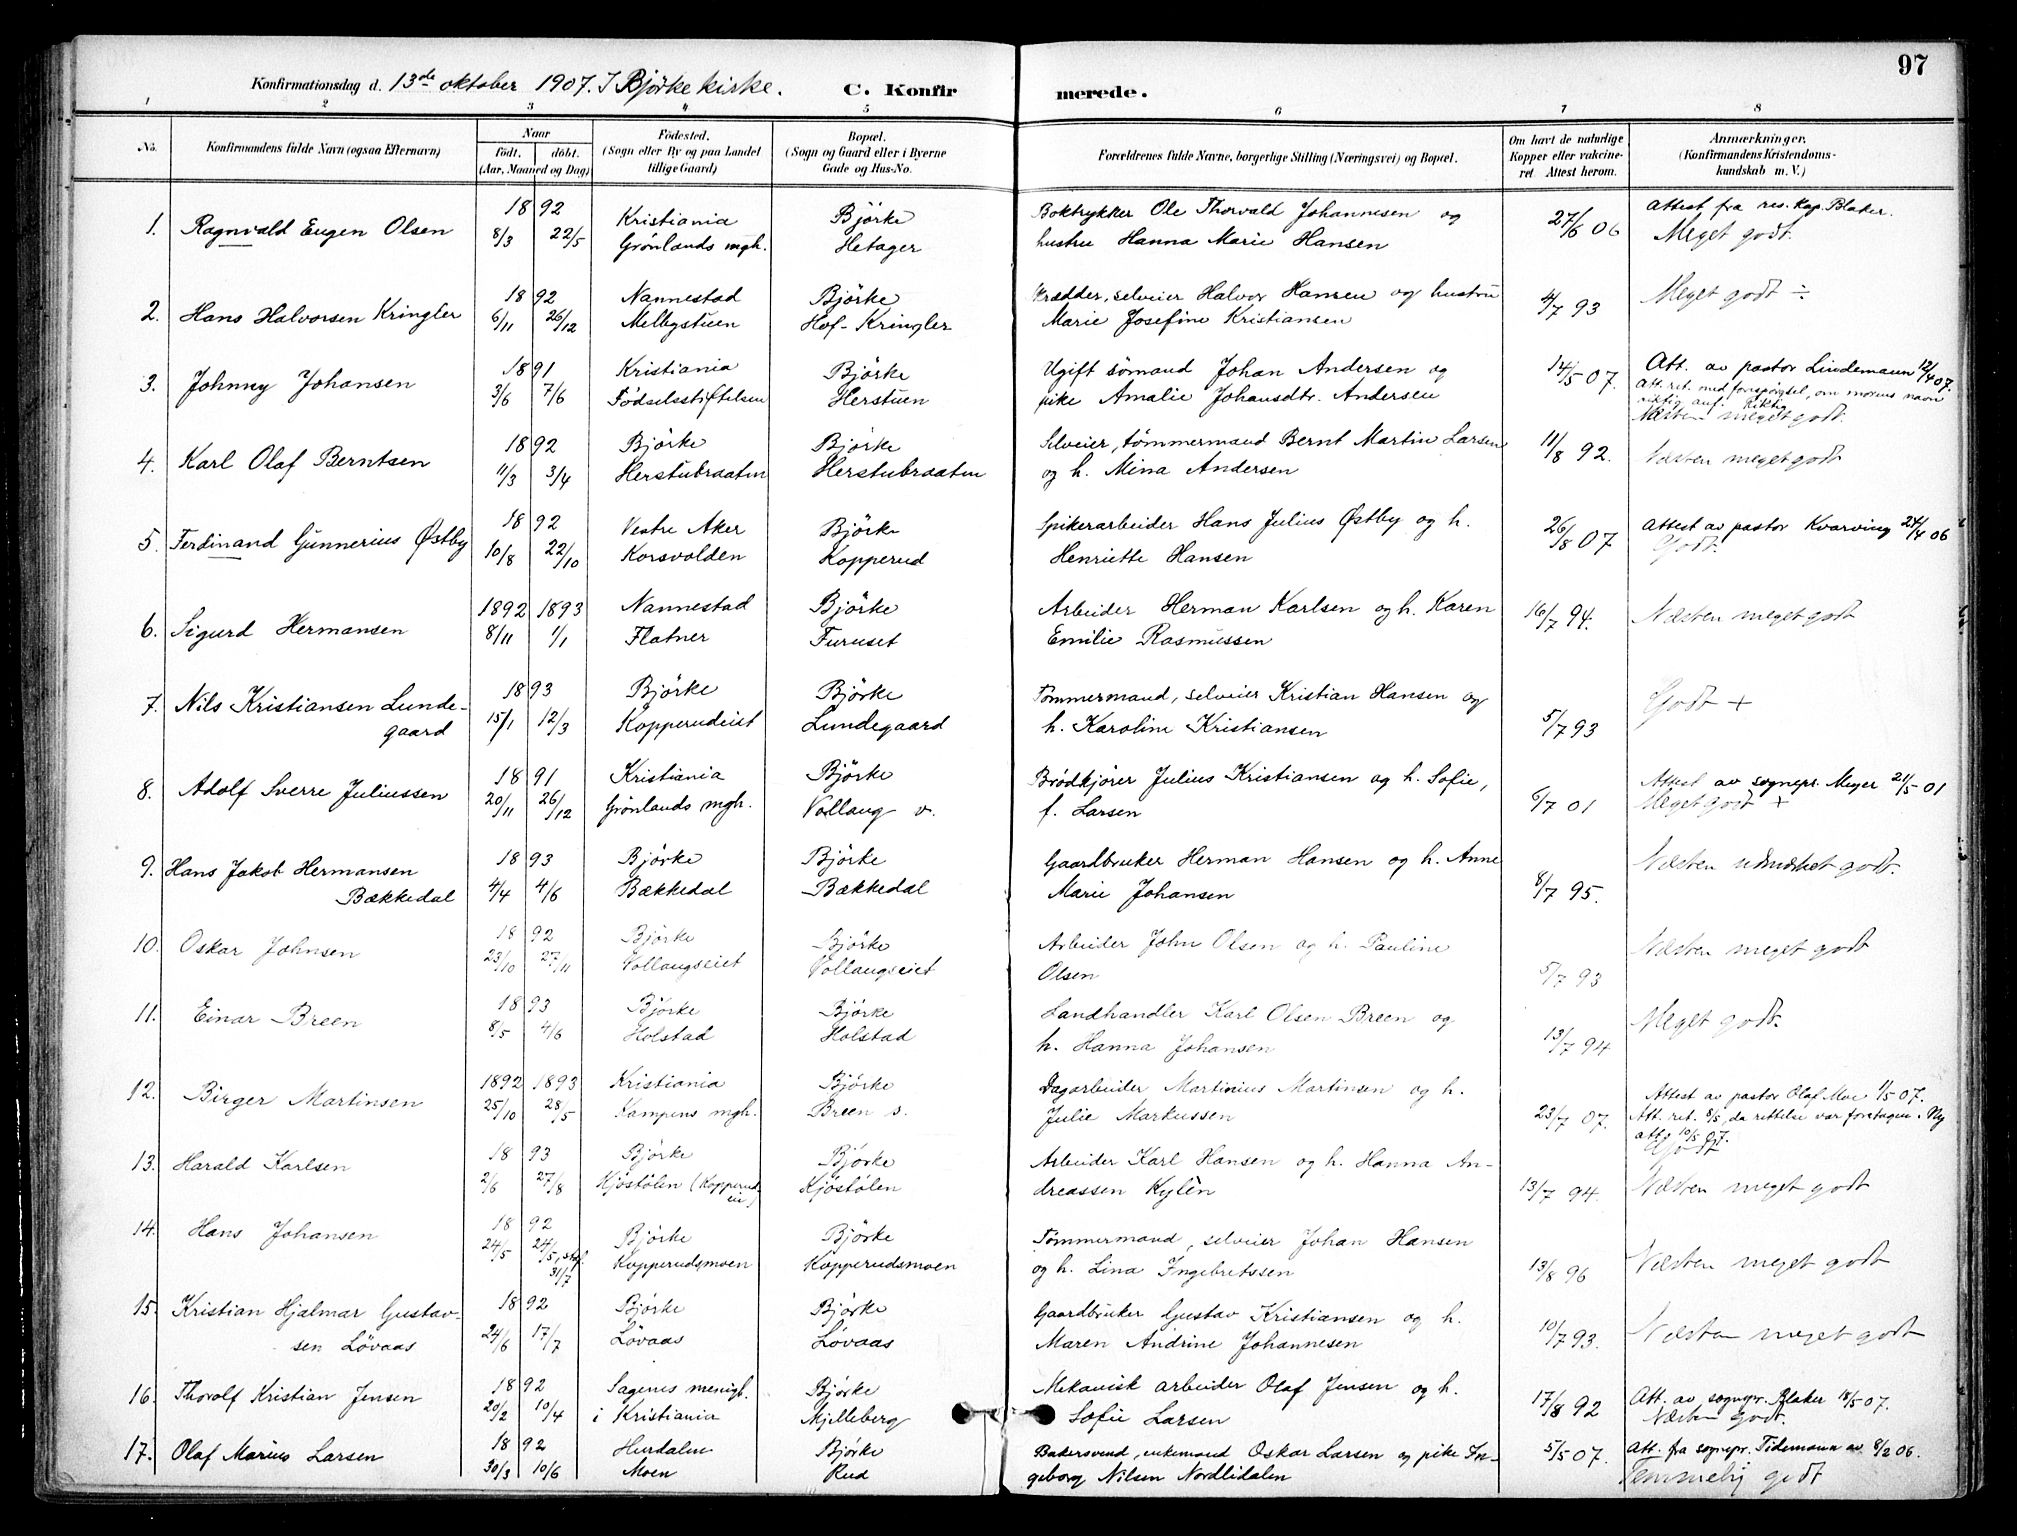 97
Konfirmationsdag d. 13de oktober 1907. I Bjørke kirke. C. Konfirmerede.
1 2 3 4 5 6 7 8
No. Konfirmandens fulde Navn (ogsaa Efternavn) Naar födt. döbt. (Aar, Maaned og Dag) Födested. (Sogn eller By og paa Landet tillige Gaard) Bopæl. (Sogn og Gaard eller i Byerne Gade og Hus-No. Forældrenes fulde Navne, borgerlige Stilling (Næringsvei) og Bopæl. Om havt de naturlige Kopper eller vakcineret. Attest herom. Anmærkninger. (Konfirmandens Kristendomskundskab m. V.)
1. Ragnvald Eugen Olsen 18 92 8/3 22/5 Kristiania Grønlands mgh. Bjørke Hetager Boktrykker Ole Thorvald Johannesen og hustru Hanna Marie Hansen 27/6 06 Attest fra res. kap. Blaker. Meget godt.
2. Hans Halvorsen Kringler 18 92 6/11 26/12 Nannestad Melbystuen Bjørke Hof-Kringler Skrædder, selveier Halvor Hansen og hustru Marie Josefine Kristiansen 4/7 93 Meget godt ÷
3. Johnny Johansen 18 91 3/6 7/6 Kristiania Fødselsstiftelsen Bjørke Herstuen Ugift sømand Johan Andersen og pike Amalie Johansdtr. Andersen 14/5 07. Att. av pastor Lindemann 12/4 07. Att. ret. med forespørgsel, om morens navn riktig anf. Riktig Næsten meget godt.
4. Karl Olaf Berntsen 18 92 11/3 3/4 Bjørke Herstubraaten Bjørke Herstubraaten Selveier, tømmermand Bernt Martin Larsen og h. Mina Andersen 11/8 92. Næsten meget godt
5. Ferdinand Gunnerius Østby 18 92 10/8 22/10 Vestre Aker Korsvolden Bjørke Kopperud Spikerarbeider Hans Julius Østby og h. Henriette Hansen 26/8 07 Attest av pastor Kvarving 24/4 06 Godt.
6. Sigurd Hermansen 1892 1893 8/11 1/1 Nannestad Flatner Bjørke Furuset Arbeider Herman Karlsen og h. Karen Emilie Rasmussen 16/7 94. Næsten meget godt
7. Nils Kristiansen Lundegaard 18 93 15/1 12/3 Bjørke Kopperudeiet Bjørke Lundegaard Tømmermand, selveier Kristian Hansen og h. Karoline Kristiansen 5/7 93 Godt +
8. Adolf Sverre Juliussen 18 91 20/11 26/12 Kristiania Grønlands mgh. Bjørke Vollaug v. Brødkjører Julius Kristiansen og h. Sofie, f. Larsen 6/7 01 Attest av sognepr. Meyer 21/5 01 Meget godt +
9. Hans Jakob Hermansen Bækkedal 18 93 4/4 4/6 Bjørke Bækkedal Bjørke Bækkedal Gaardbruker Herman Hansen og h. Anne Marie Johansen 8/7 95. Næsten udmærket godt.
10. Oskar Johnsen 18 92 23/10 27/11 Bjørke Vollaugseiet Bjørke Vollaugseiet Arbeider John Olsen og h. Pauline Olsen 5/7 93 Næsten meget godt
11. Einar Breen 18 93 8/5 4/6 Bjørke Holstad Bjørke Holstad Landhandler Karl Olsen Breen og h. Hanna Johansen 13/7 94 Meget godt.
12. Birger Martinsen 1892 1893 25/10 28/5 Kristiania Kampens mgh. Bjørke Breen s. Dagarbeider Martinius Martinsen og h. Julie Markussen 23/7 07. Attest av pastor Olaf Moe 1/5 07. Att. ret. 8/5, da rettelse var foretagen. Ny att. 10/5 07. Godt
13. Harald Karlsen 18 93 2/6 27/8 Bjørke Kjøstølen (Kopperudeie) Bjørke Kjøstølen Arbeider Karl Hansen og h. Hanna Andreassen Kylén 13/7 94. Næsten meget godt
14. Hans Johansen 18 92 24/5 24/5, stf. 31/7 Bjørke Kopperudsmoen Bjørke Kopperudsmoen Tømmermand, selveier Johan Hansen og h. Lina Ingebretsen 13/8 96 Næsten meget godt
15. Kristian Hjalmar Gustavsen Løvaas 18 92 24/6 17/7 Bjørke Løvaas Bjørke Løvaas Gaardbruker Gustav Kristiansen og h. Maren Andrine Johannesen 10/7 93. Næsten meget godt
16. Thorolf Kristian Jensen 18 92 20/2 10/4 Sagenes menigh. i Kristiania Bjørke Mjelleberg Mekanisk arbeider Olaf Jensen og h. Sofie Larsen 17/8 92 Att. av sognepr. Blaker 18/5 07. Næsten godt.
17. Olaf Marius Larsen 18 92 30/3 10/6 Hurdalen Moen Bjørke Rud Bakersvend, enkemand Oskar Larsen og pike Ingeborg Nilsen Nordlidalen 5/5 07. Att. fra sognepr. Tidemann av 8/2 06. Temmelig godt